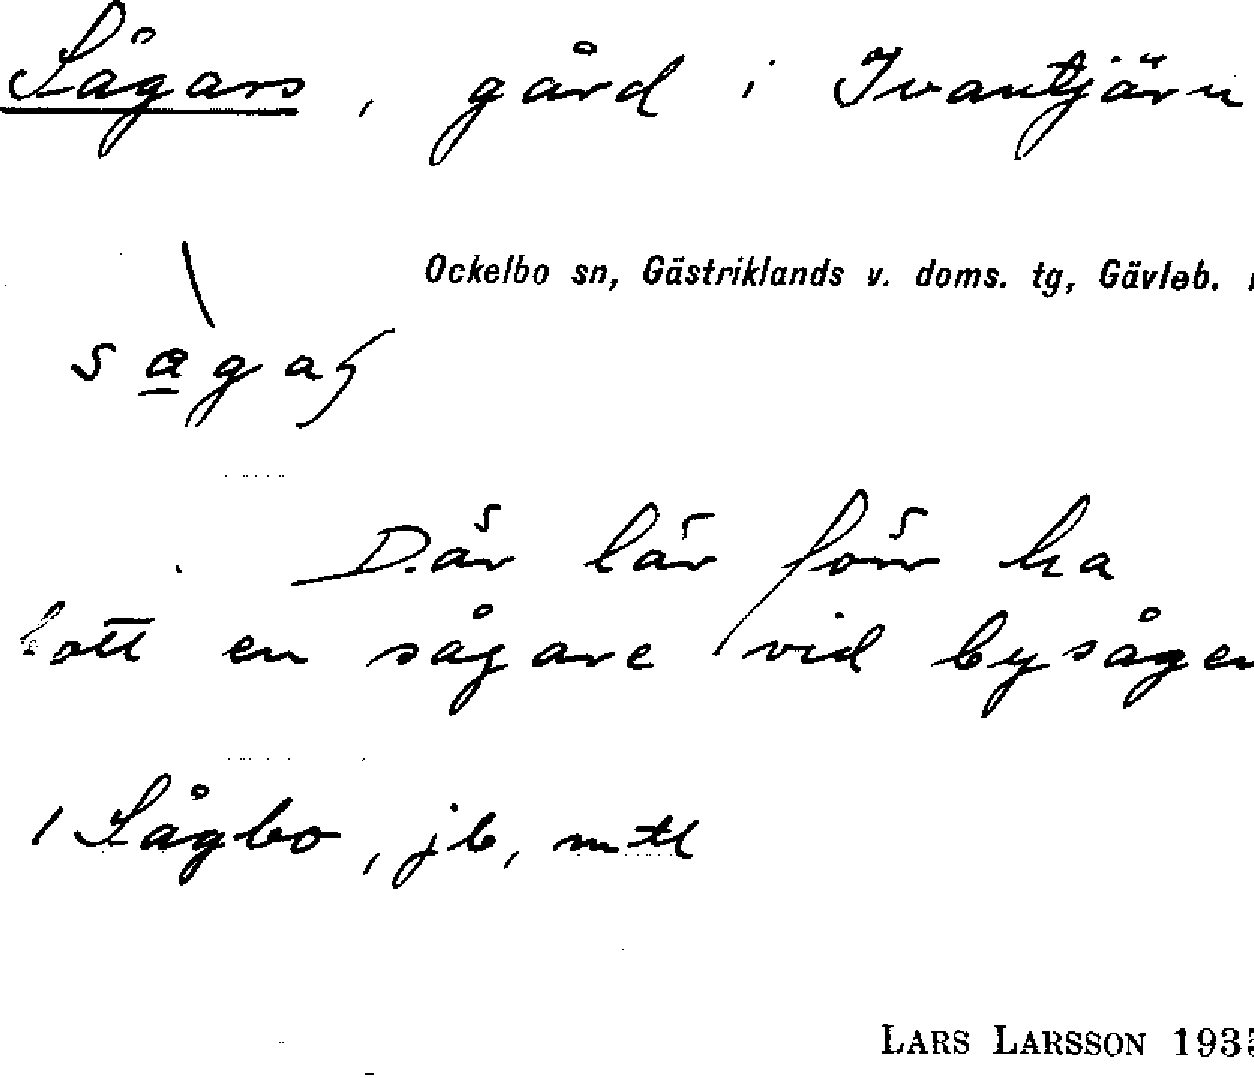 Sågars, gård i Ivantjärn
Ockelbo sn, Gästriklands v. doms. tg, Gävleb.
Där lär förr ha
bott en sågare vid bysågen
/ Sågbo, jb, mtl
LARS LARSSON 1935